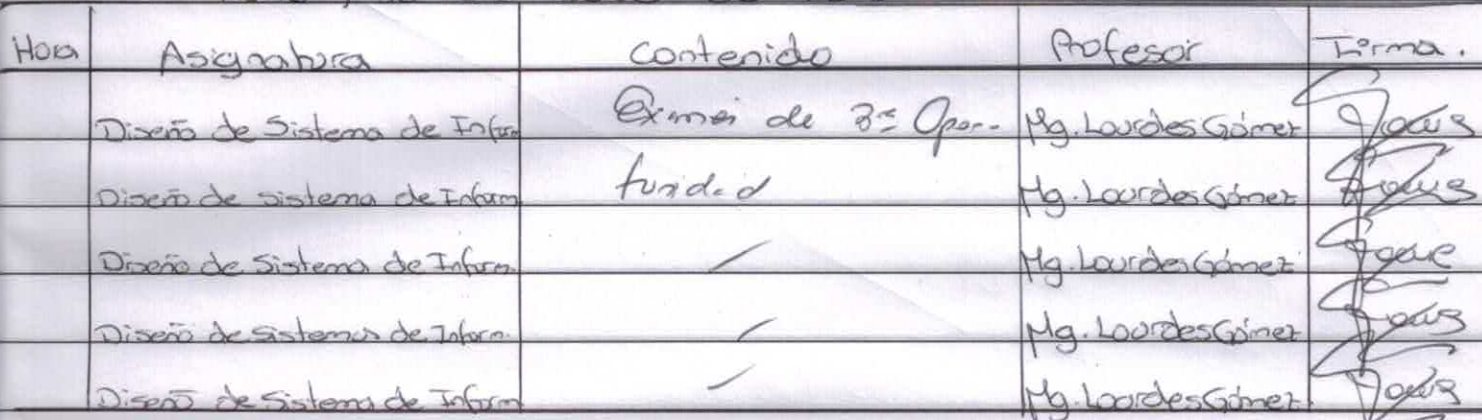 Hora Asignatura Contenido Profesor Firma.
Diseño de Sistema de Inform Examen de 3ª Opor- Mg. Lourdes Gómez
Diseño de sistema de Inform tunidad Mg. Lourdes Gómez
Diseño de Sistema de Inform. / Mg. Lourdes Gómez
Diseño de Sistemas de Inform. / Mg. Lourdes Gómez
Diseño de Sistema de Inform / Mg. Lourdes Gómez